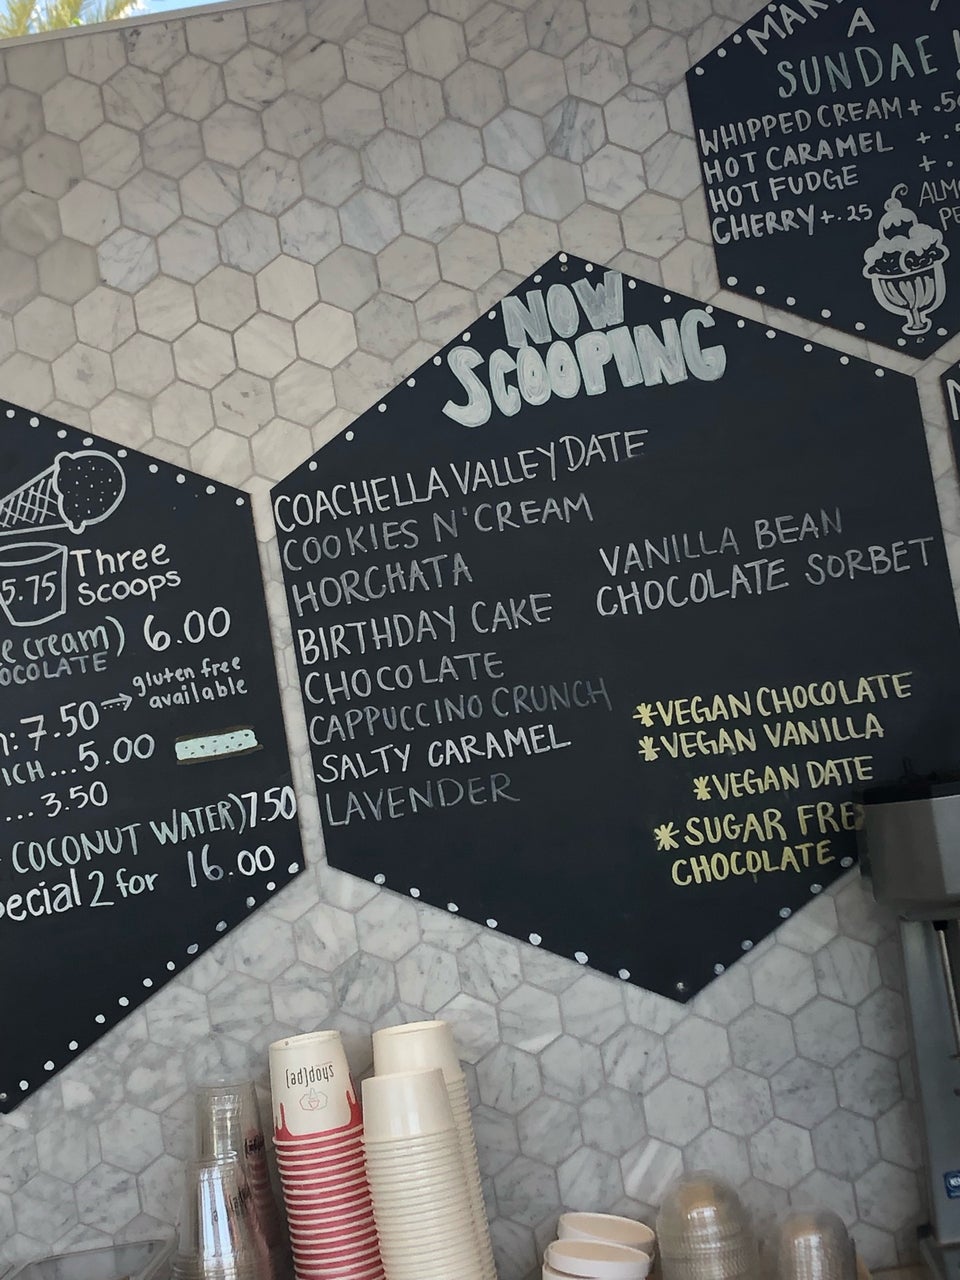 A
SUNDAE
WHIPPED CREAM +
HOT CARAMEL +
HOT FUDGE +
CHERRY +.25
NOW
SCOOPING
COACHELLA VALLEY DATE
COOKIES N'CREAM
HORCHATA
BIRTHDAY CAKE
CHOCOLATE
CAPPUCCINO CRUNCH
SALTY CARAMEL
LAVENDER
VANILLA BEAN
CHOCOLATE SORBET
*VEGAN CHOCOLATE
*VEGAN VANILLA
*VEGAN DATE
*SUGAR FRE
CHOCOLATE
5.75
Three
Scoops
cream) 6.00
gluten free
available
7.50
5.00
... 3.50
COCONUT WATER) 7.50
2 for 16.00
{ad}doys